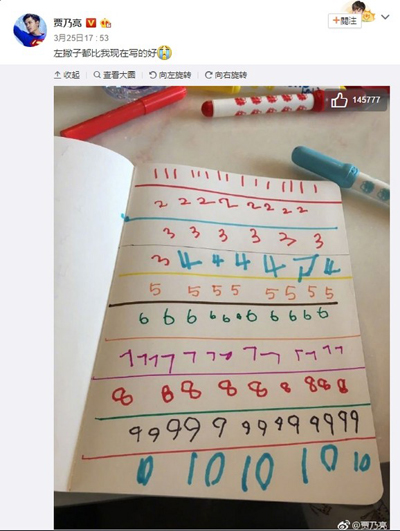 贾乃亮
3月25日 17:53
+關注
左撇子都比我现在写的好😭
收起 查看大图 向左旋转 向右旋转
145777
2 2 2 2 2 2 2 2
3 3 3 3 3 3
3 4 4 4 4 4 4
5 5 5 5 5 5 5 5
6 6 6 6 6 6 6 6 6 6 6
7 7 7 7 7 7 7 7 7 7 7 7 7
8 8 8 8 8 8 8 8 8
9 9 9 9 9 9 9 9 9 9 9 9 9
10 10 10 10 10
@贾乃亮